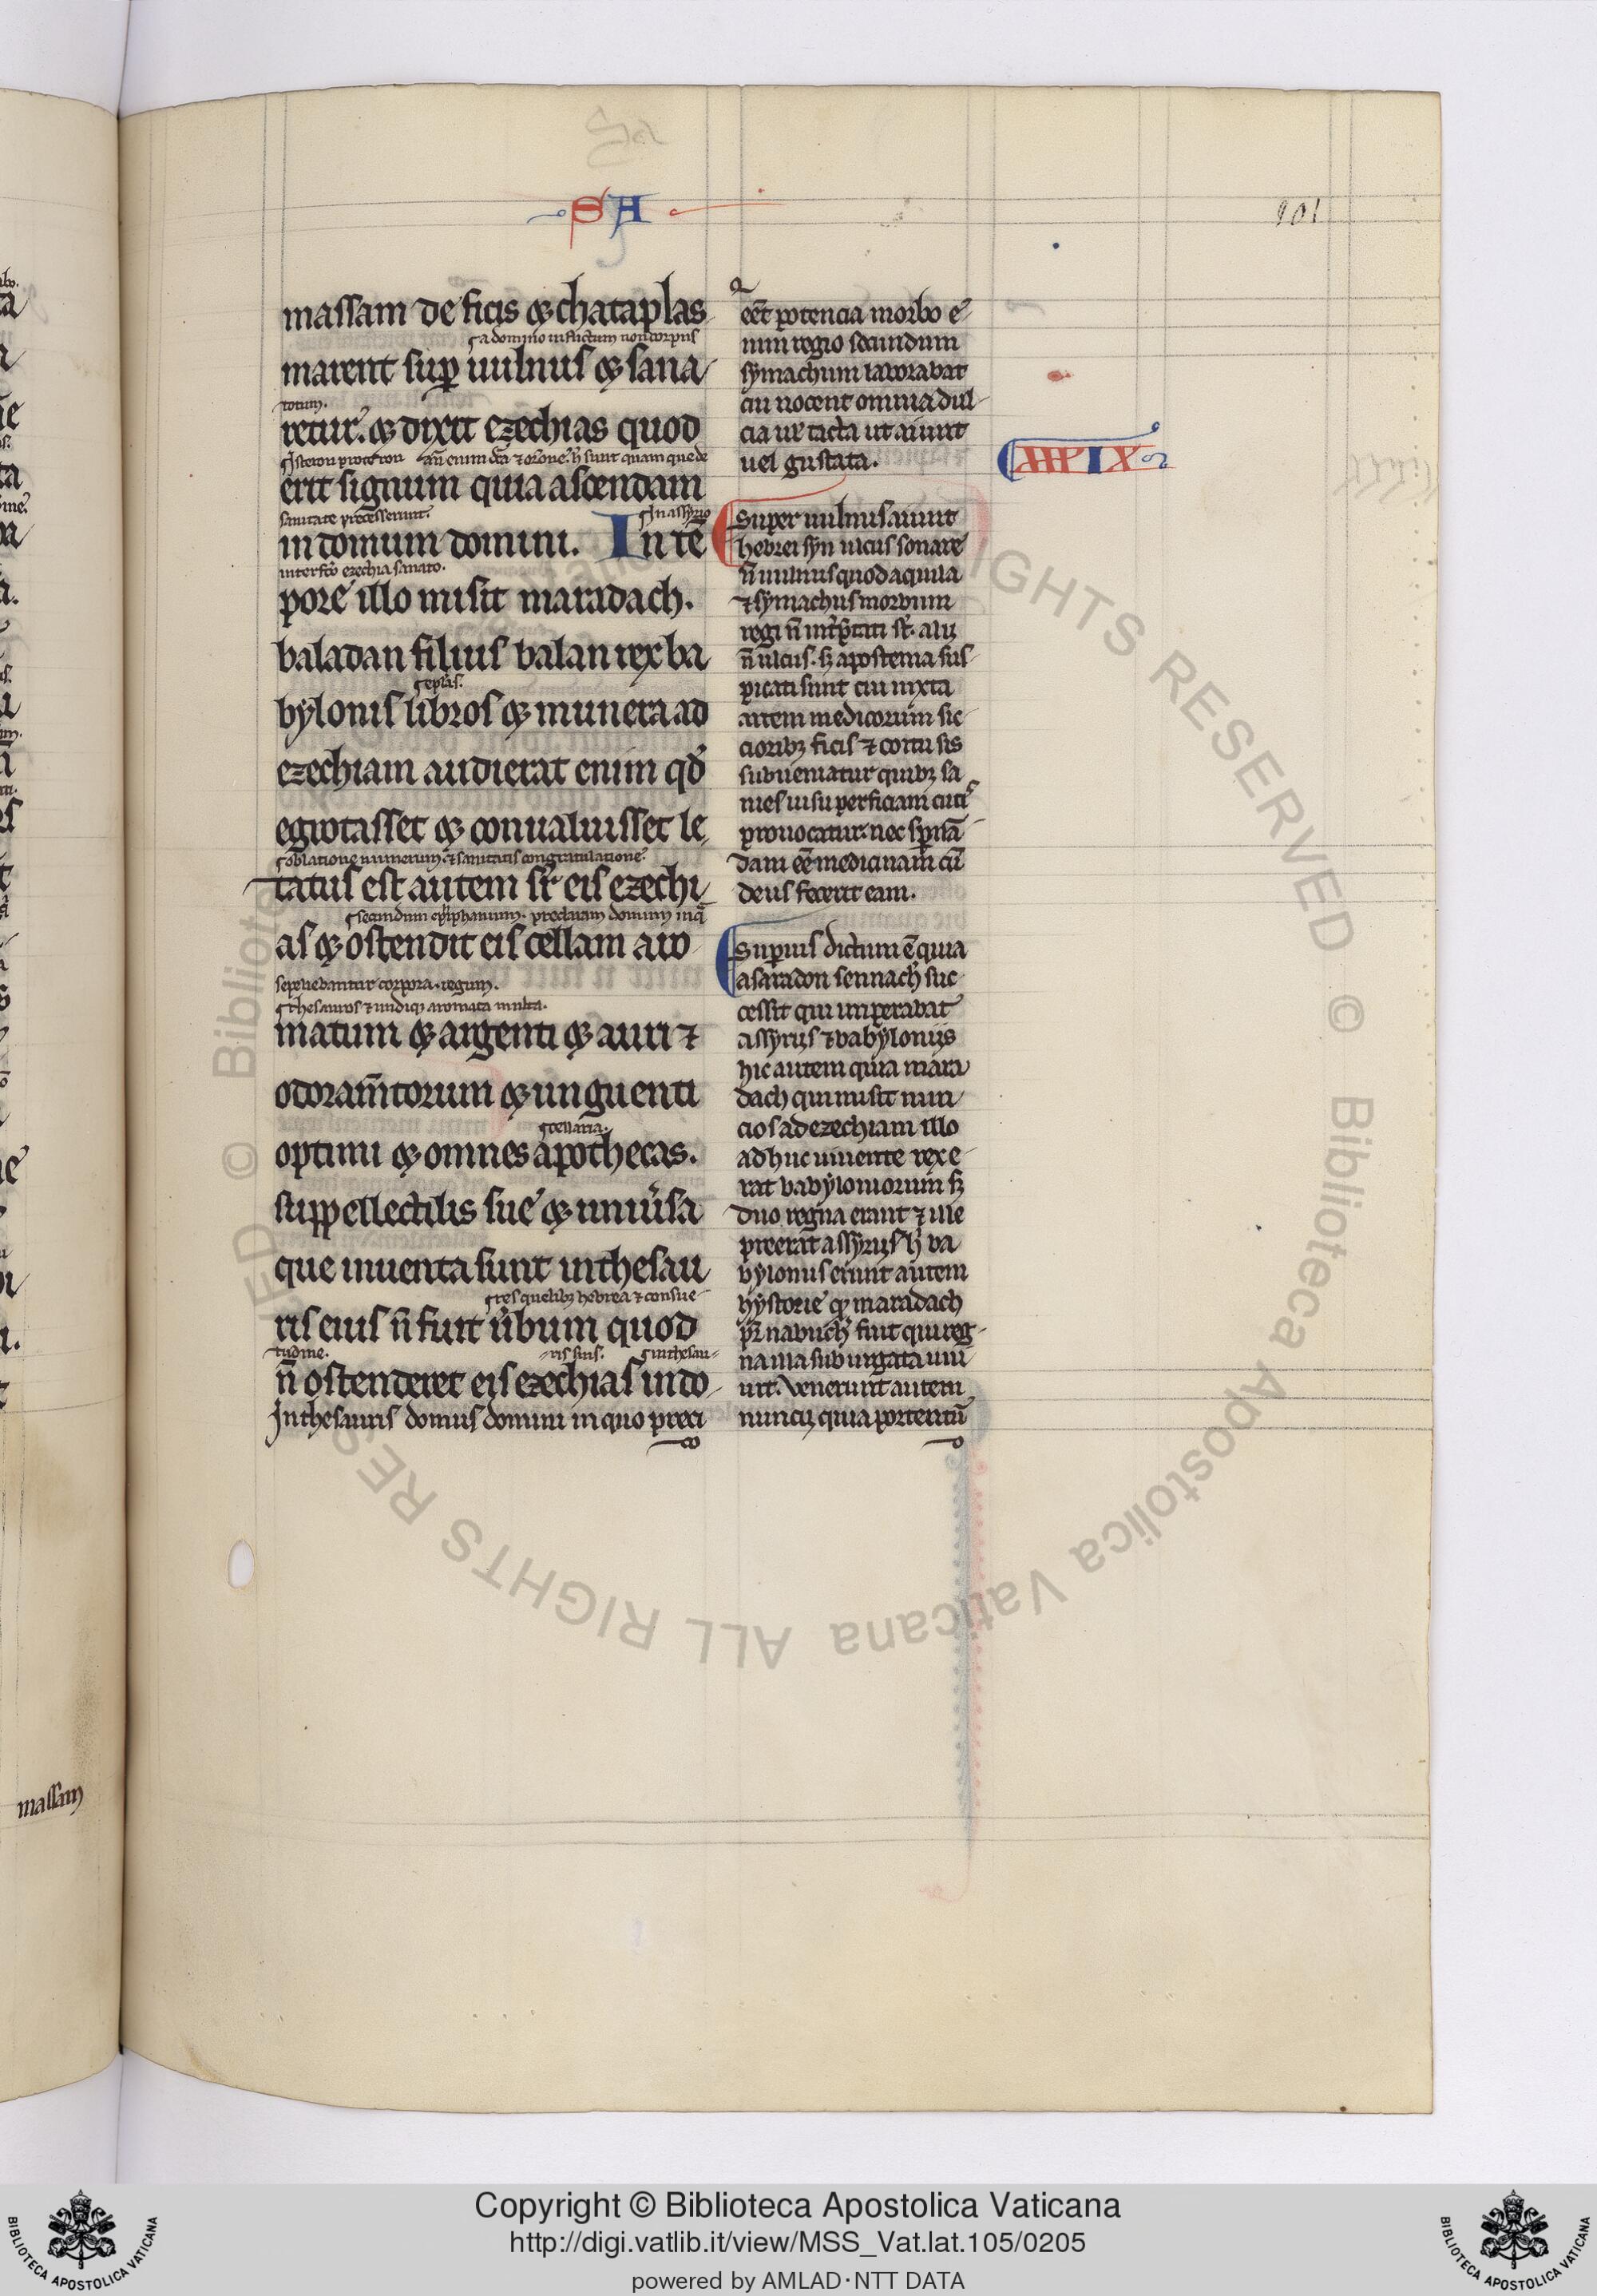 SA
101
massam de ficis ⁊ chataplas
ga domino inflictum non corpus
marent sup uulnus ⁊ sana
totum.
retur. ⁊ dixit ezechias quod
erit signum quia ascendam
sanitate precesserunt.
in domum domini. In te
interfecto ezechia sanato.
pore illo misit maradach.
baladan filius balan rex ba
bylonis libros ⁊ munera ad
ezechiam audierat enim qđ
egrotasset ⁊ conualuisset le
oblatione munerum ⁊ sanitatis congratulatione.
tatus est autem sr eis ezechi
secundum epiphanium. preclaram domum in q
as ⁊ ostendit eis cellam aro
sepeliebantur corpora regum.
thesauros ⁊ undiqꝫ aromata multa.
matum ⁊ argenti ⁊ auri ⁊
odoramtorum ⁊ unguenti
cellaria.
optimi ⁊ omnes apothecas.
suppellectilis sue ⁊ uniũsa
que inuenta sunt in thesau
res quelibꝫ hebrea ⁊ consue
ris eius ñ fuit ũbum quod
tudine. ris suis. in thesau
ñ ostenderet eis ezechias in do
In thesauris domus domini in quo preci
eet potencia morbo e
nim regio secundum
symachum laborabat
cui nocent omnia dul
cia uł tacta ut aiunt
uel gustata.
XXXIX
Super uulnus aiunt
hebrei syn ulcus sonare
ñ uulnus quod aquila
⁊ symachus morbum
regi ñ intptati st. alij
ñ ulcus. sꝫ apostema sus
picati sunt cui iuxta
artem medicorum sic
cioribꝫ ficis ⁊ contusis
subueniatur quibꝫ sa
nies in superficiam cutis
prouocatur. nec spnã
dam eē medicinam cũ
deus fecerit eam.
Superius dictum ē quia
asaradon sennach suc
cessit qui imperabat
assyrijs ⁊ babylonijs
hic autem quia mara
dach qui misit nun
cios ad ezechiam illo
adhuc uiuente rexe
rat babyloniorum sꝫ
duo regna erant ⁊ ille
preerat assyrijs h ba
bylonijs erunt autem
hystorie qꝫ maradach
pr nabuch fuit qui reg
na ma subiugata uni
uit. Venerunt autem
nuncij quia portentũ
massam
Copyright © Biblioteca Apostolica Vaticana
http://digi.vatlib.it/view/MSS_Vat.lat.105/0205
powered by AMLAD·NTT DATA
BIBLIOTECA APOSTOLICA VATICANA
BIBLIOTECA APOSTOLICA VATICANA
© Biblioteca Apostolica Vaticana ALL RIGHTS RESERVED